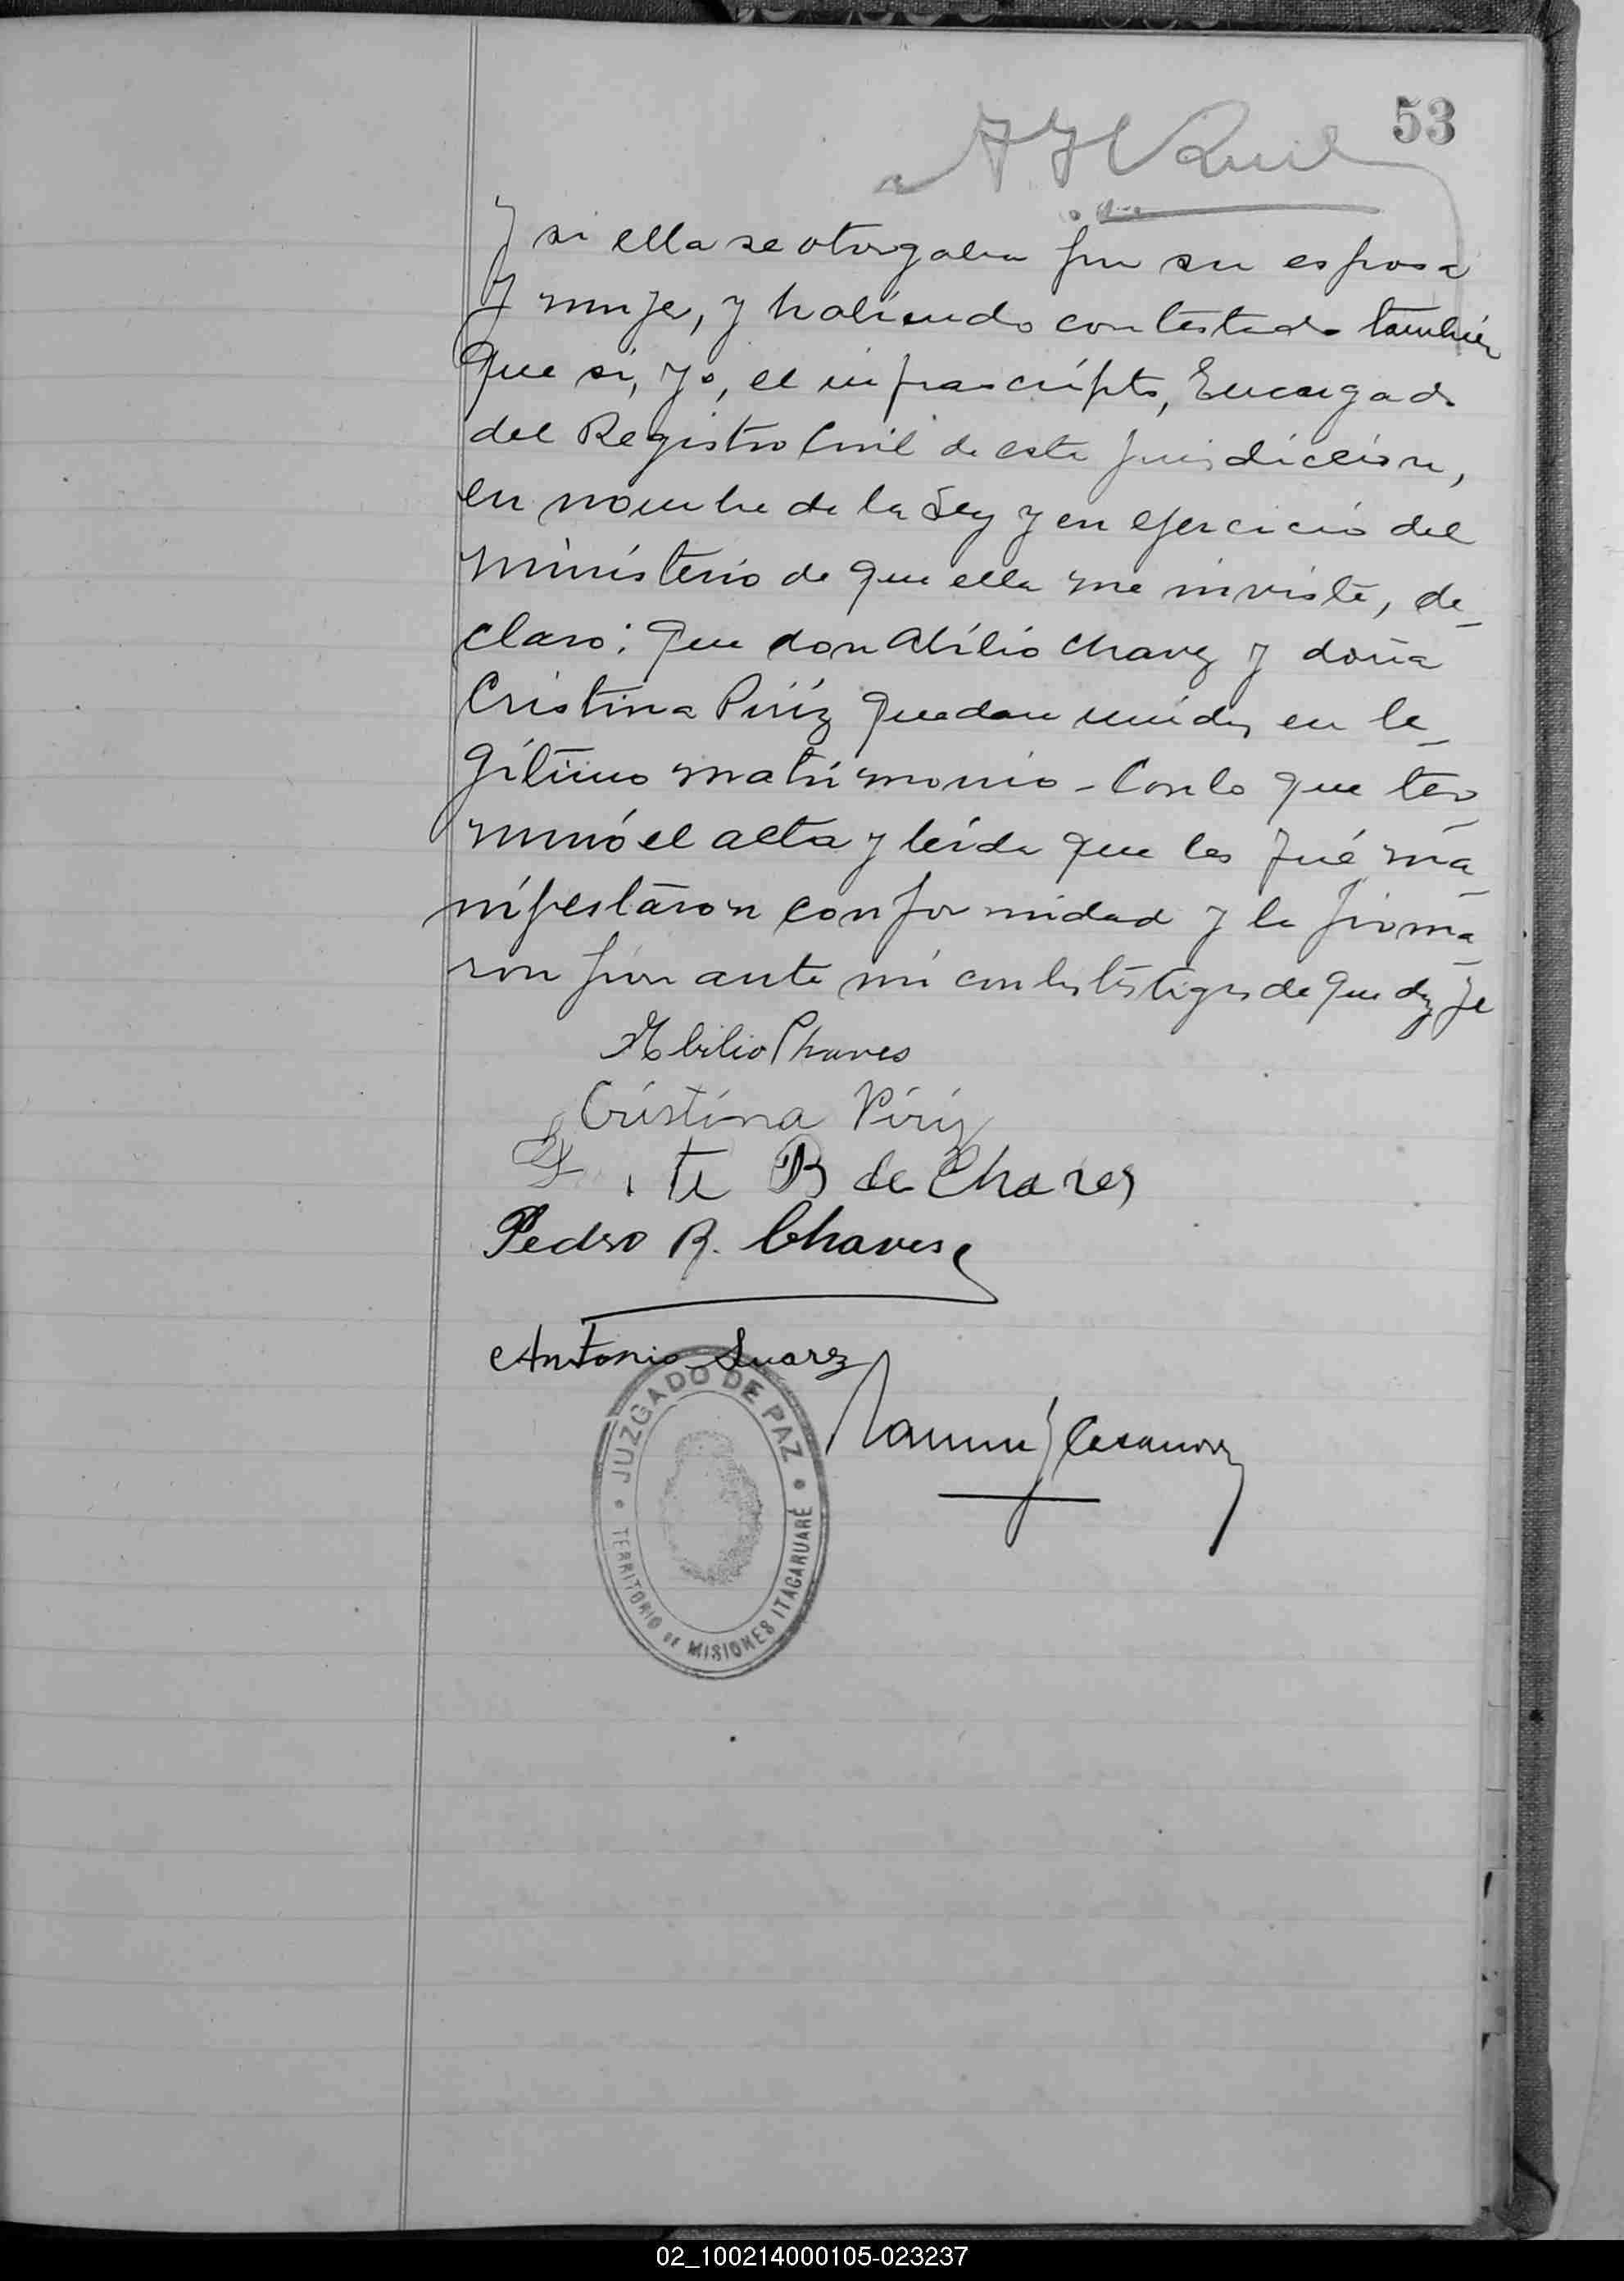 53
y si ella se otorgaba por su esposa
y mujer, y habiendo contestado también
que si, yo, el infrascripto, Encargado
del Registro Civil de esta jurisdicción,
en nombre de la Ley y en ejercicio del
ministerio de que ella me inviste, de_
claro: que don Abilio Chavez y doña
Cristina Piriz quedan unidos en le_
gítimo matrimonio - Con lo que ter_
minó el acta y leída que les fué ma_
nifestaron conformidad y la firma_
ron por ante mí con los testigos de que doy fe
Abilio Chaves
Cristina Piriz
te B de Chaves
Pedro R. Chaves
Antonio Suarez
JUZGADO DE PAZ
TERRITORIO DE MISIONES ITACARUARÉ
02_100214000105-023237